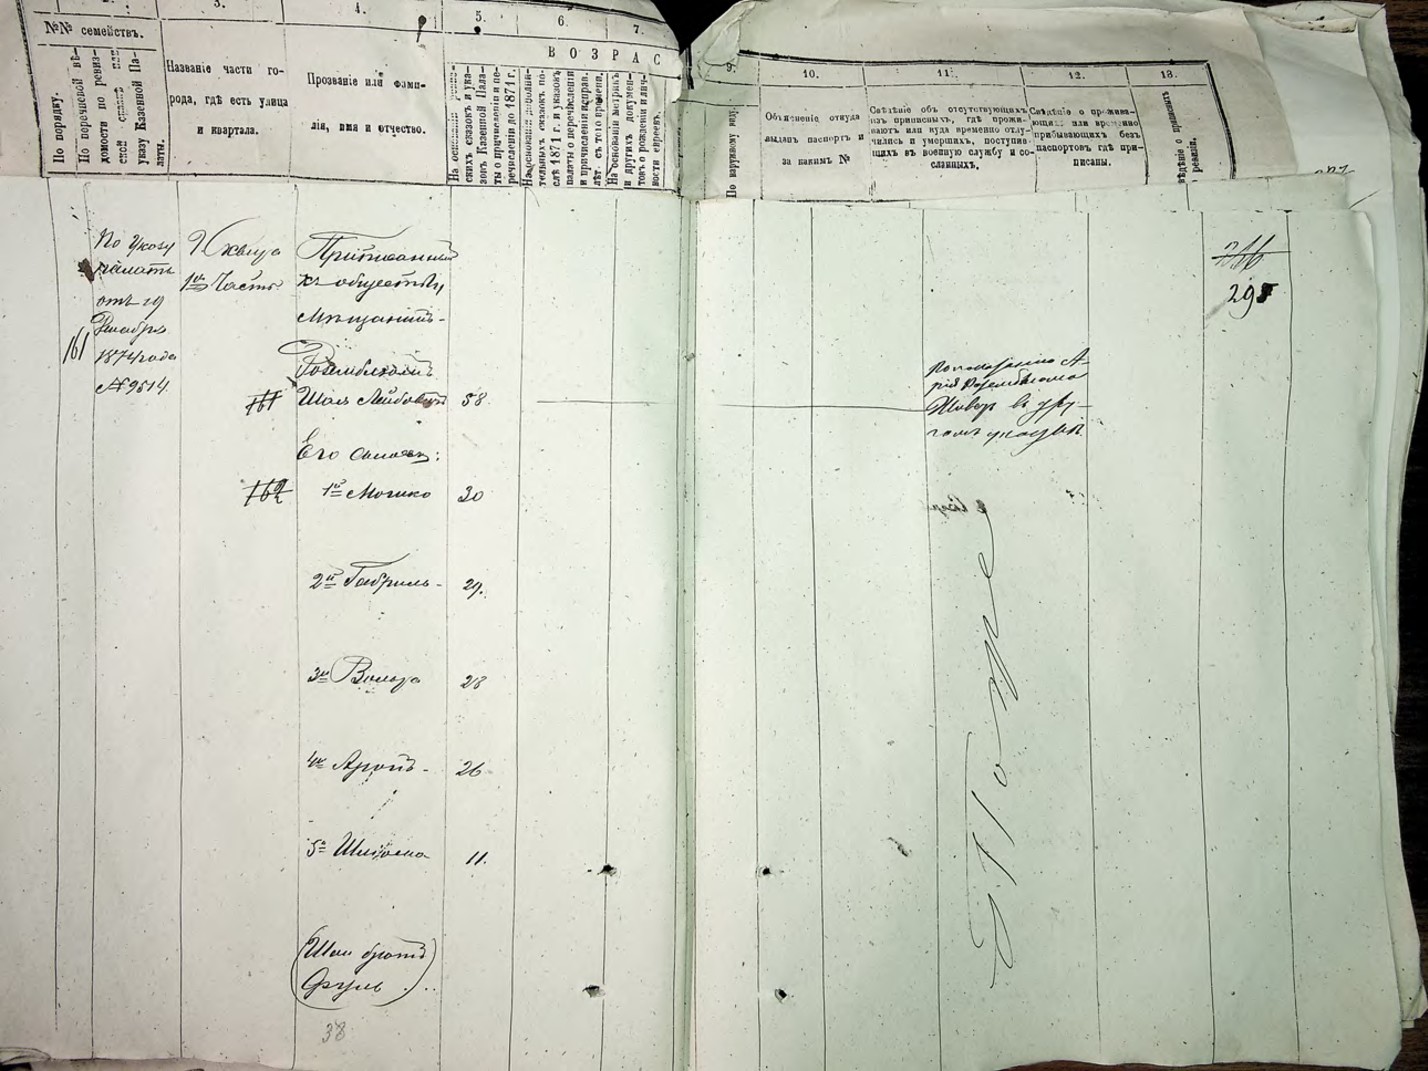 3.
4.
5.
6.
7.
№№ семействъ.
По порядку.
По перечневой вѣ-
домости по ревиз-
ской сказкѣ или
указу Казенной Па-
латы.
Названіе части го-
рода, гдѣ есть улица
и квартала.
Прозваніе или фами-
лія, имя и отчество.
ВОЗРАС
На основаніи ревиз-
скихъ сказокъ и ука-
зовъ Казенной Пала-
ты о причисленіи и пе-
речисленіи до 1871 г.
На основаніи дополни-
тельныхъ сказокъ по-
слѣ 1871 г. и указовъ
палаты о перечисленіи
и причисленіи исправ.
лѣт. съ того времени.
На основаніи метрикъ
и другихъ докумен-
товъ о рожденіи и лич-
ности евреевъ.
9.
10.
11.
12.
13.
По наружному виду.
Объясненіе откуда
выданъ паспортъ и
за какимъ №
Свѣдѣніе объ отсутствующихъ
изъ приписныхъ, гдѣ прожи-
ваютъ или куда временно отлу-
чились и умершихъ, поступив-
шихъ въ военную службу и со-
сланныхъ.
Свѣдѣніе о прожива-
ющихъ или временно
прибывающихъ безъ
паспортовъ гдѣ при-
писаны.
316
295
По указу
палаты
отъ 19
Декабря
1874 года
№ 9514
161
2 кварт
1й Части
Приписанный
къ обществу
Мѣщанинъ
Розенблюмъ
161 Шая Лейбовичъ 58.
Его сыновья:
162 1й Мошко 30
2й Габриль 29.
3й Вольф 28
4й Аронъ 26
5й Шлиома 11.
(Шаи братъ
Фроль)
38
По показанію А-
рія Розенблюма
въ дру-
гомъ